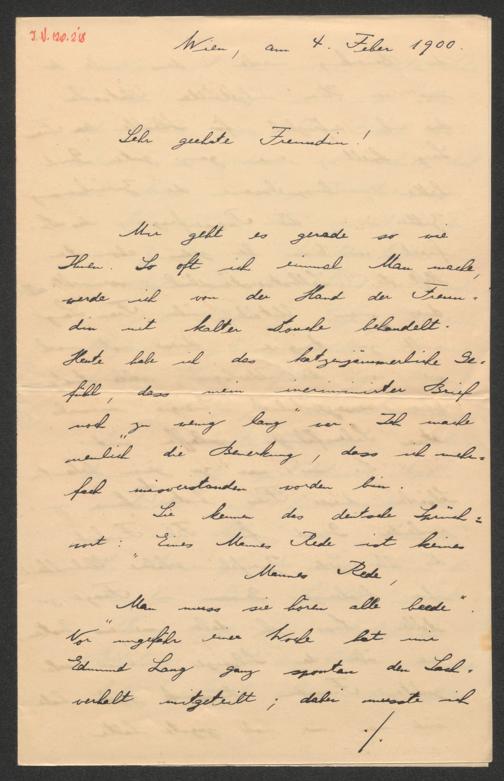 I.N. 120.218
Wien, am 4. Feber 1900.
Sehr geehrte Freundin!
Mir geht es gerade so wie
Ihnen. So oft ich einmal Man mache,
werde ich von der Hand der Freun-
din mit kalter Douche behandelt.
Heute habe ich das katzenjämmerliche Ge-
fühl, dass mein incriminirter Brief
noch "zu wenig lang" war. Ich mache
nemlich die Bemerkung, dass ich mehr-
fach missverstanden worden bin.
Sie kennen das deutsche Sprüch-
wort: "Eines Mannes Rede ist keines
Mannes Rede,
Man muss sie hören alle beede".
Vor ungefähr einer Woche hat mir
Edmund Lang ganz spontan den Sach-
verhalt mitgeteilt; dabei musste ich
./.